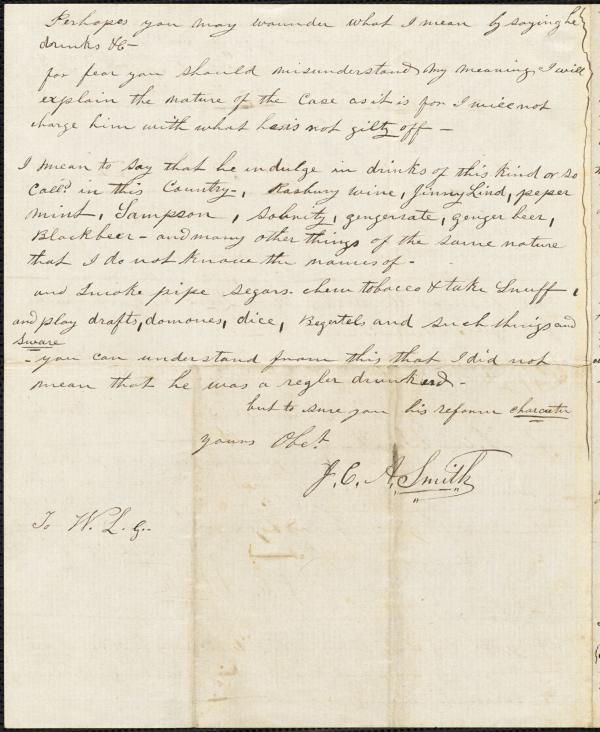 Perhopes you may wounder what I mean by saying he
drinks &c -
for fear you should misunderstand my meaning, I will
explain the nature of the case as it is for I will not
charge him with what he is not gilty off -
I mean to say that he indulge in drinks of this kind or so
Calld. in this Country -, Rasbury wine, Jinny Lind, peper
mint, Sampson, Sobrity, gengerate, genger beer,
Blackbeer - and many other things of the same nature
that I do not knowe the names of -
and smoke pipe segars. chew tobacco & take Snuff,
and play drafts, domones, dice, and such things and
sware
- you can understand from this that I did not
mean that he was a regler drunkerd -
but to sure you his reform charcuter
yours Obet.
J. C. A. Smith
To W. L. G.